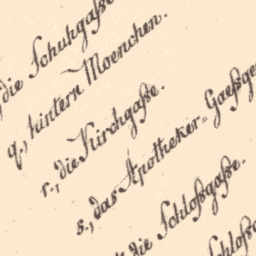 die Schuhgaße
q., hintern Moenchen.
r., die Kirchgaße.
s., das Apotheker=Gaeßge
die Schloßgaße.
Schloß